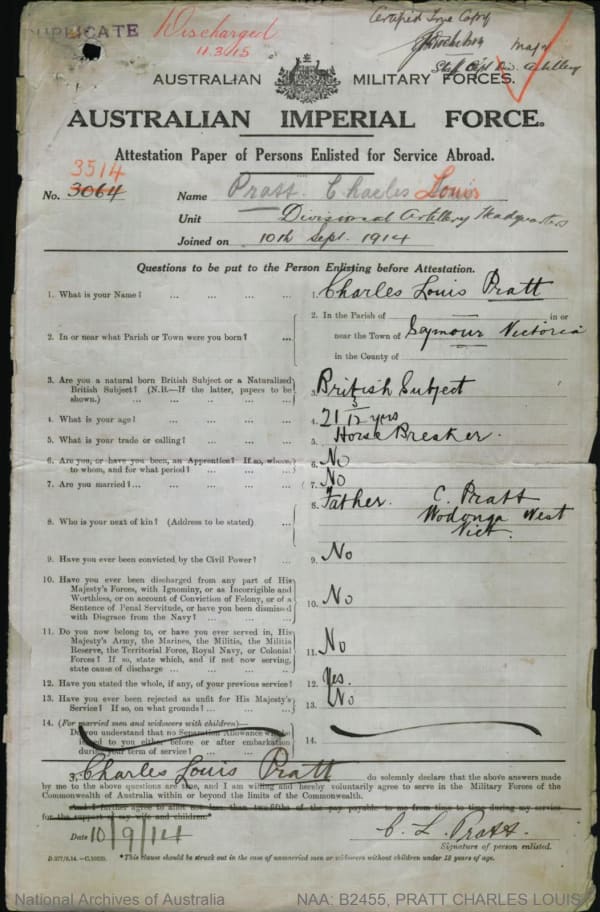 DUPLICATE Discharged
11.3.15
Certified True Copy
Major
Staff Capt Div. Artillery
AUSTRALIAN MILITARY FORCES.
AUSTRALIAN IMPERIAL FORCE.
Attestation Paper of Persons Enlisted for Service Abroad.
3514
No. 3064 Name Pratt. Charles Louis
Unit Divisional Artillery Headquarters
Joined on 10th Sept. 1914
Questions to be put to the Person Enlisting before Attestation.
1. What is your Name? ... ... ... ... 1. Charles Louis Pratt
2. In or near what Parish or Town were you born? ... 2. In the Parish of in or
near the Town of Seymour Victoria
in the County of
3. Are you a natural born British Subject or a Naturalised
British Subject? (N.B.—If the latter, papers to be
shown.) ... ... ... ... ... 3. British Subject
4. What is your age? ... ... ... ... 4. 21 5/12 yrs
5. What is your trade or calling? ... ... ... 5. Horse Breaker.
6. Are you, or have you been, an Apprentice? If so, where,
to whom, and for what period? ... ... ... 6. No
7. Are you married? ... ... ... ... 7. No
8. Who is your next of kin? (Address to be stated) ... 8. Father. C. Pratt
Wodonga West
Vict.
9. Have you ever been convicted by the Civil Power? ... 9. No
10. Have you ever been discharged from any part of His
Majesty's Forces, with Ignominy, or as Incorrigible and
Worthless, or on account of Conviction of Felony, or of a
Sentence of Penal Servitude, or have you been dismissed
with Disgrace from the Navy? ... ... ... 10. No
11. Do you now belong to, or have you ever served in, His
Majesty's Army, the Marines, the Militia, the Militia
Reserve, the Territorial Force, Royal Navy, or Colonial
Forces? If so, state which, and if not now serving,
state cause of discharge ... ... ... ... 11. No
12. Have you stated the whole, if any, of your previous service? 12. Yes.
13. Have you ever been rejected as unfit for His Majesty's
Service? If so, on what grounds? ... ... ... 13. No
14. (For married men and widowers with children)—
Do you understand that no Separation Allowance will be
issued to you either before or after embarkation
during your term of service? ... ... ... 14.
I, Charles Louis Pratt do solemnly declare that the above answers made
by me to the above questions are true, and I am willing and hereby voluntarily agree to serve in the Military Forces of the
Commonwealth of Australia within or beyond the limits of the Commonwealth.
And I further agree to allot not less than two-fifths of the pay payable to me from time to time during my service
for the support of my wife and children.*
Date 10/9/14 C. L. Pratt.
Signature of person enlisted.
*This clause should be struck out in the case of unmarried men or widowers without children under 18 years of age.
National Archives of Australia NAA: B2455, PRATT CHARLES LOUIS